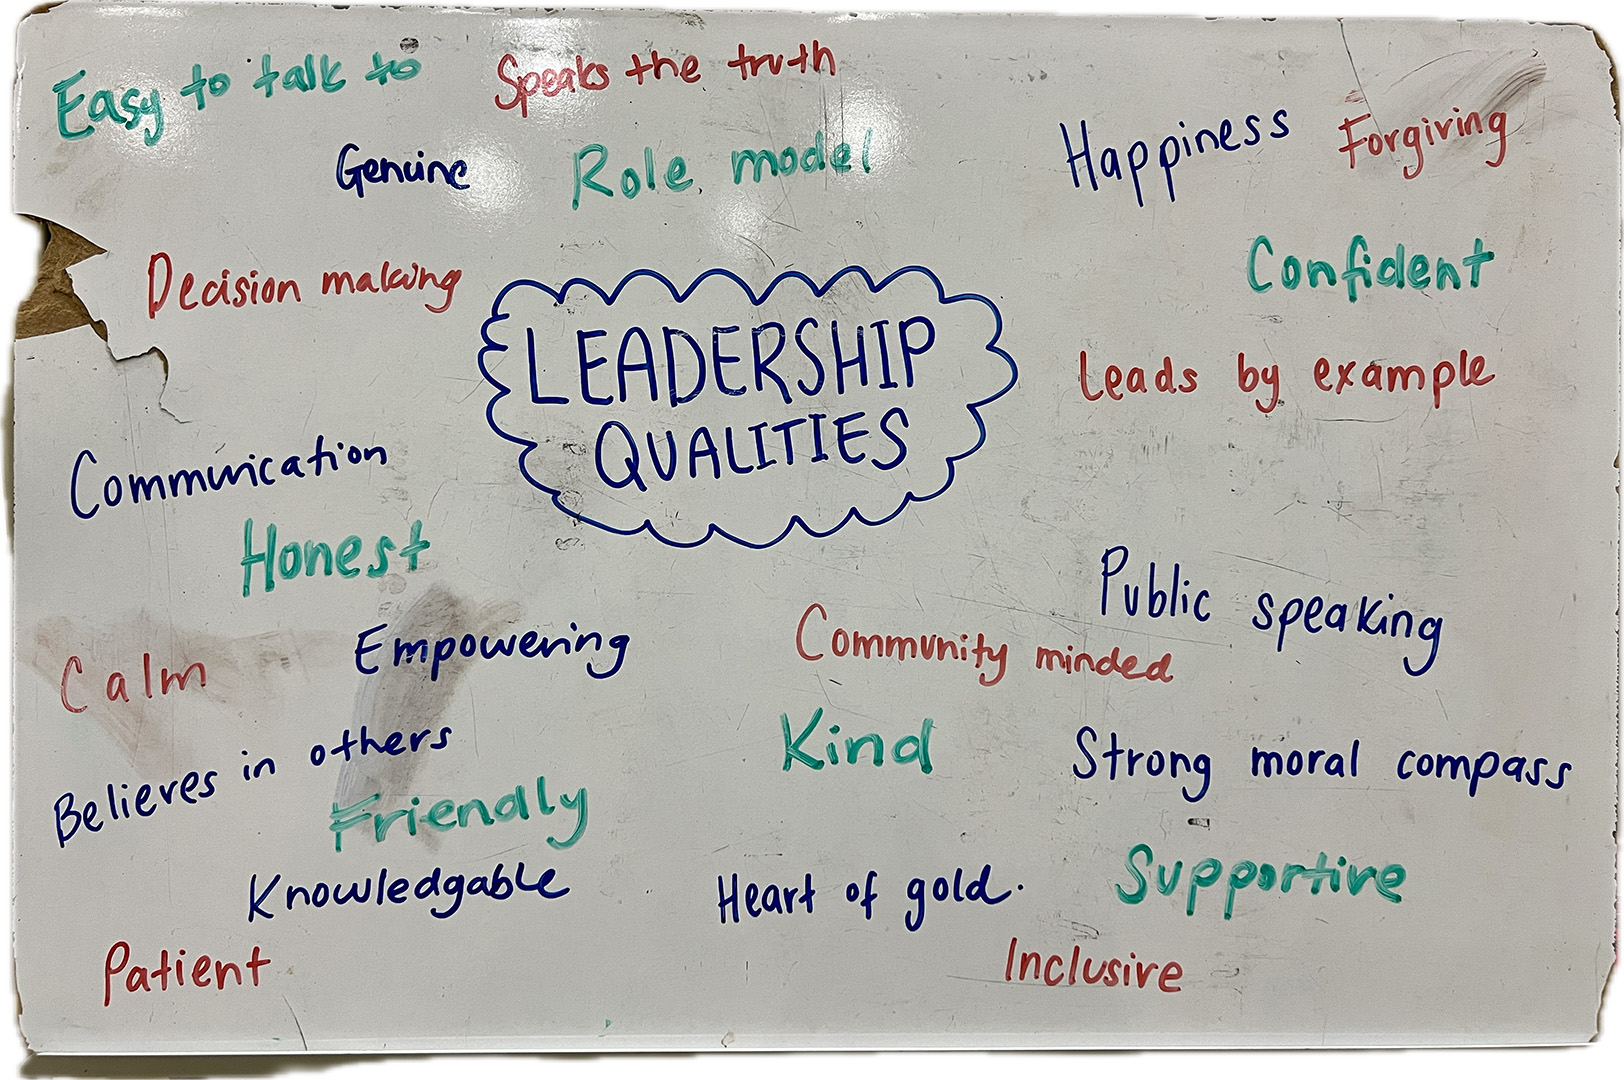 Easy to talk to
Speaks the truth
Genuine
Role model
Happiness
Forgiving
Decision making
Confident
LEADERSHIP
QUALITIES
Leads by example
Communication
Honest
Public speaking
Calm
Empowering
Community minded
Believes in others
Kind
Strong moral compass
Friendly
Knowledgable
Heart of gold.
Supportive
Patient
Inclusive